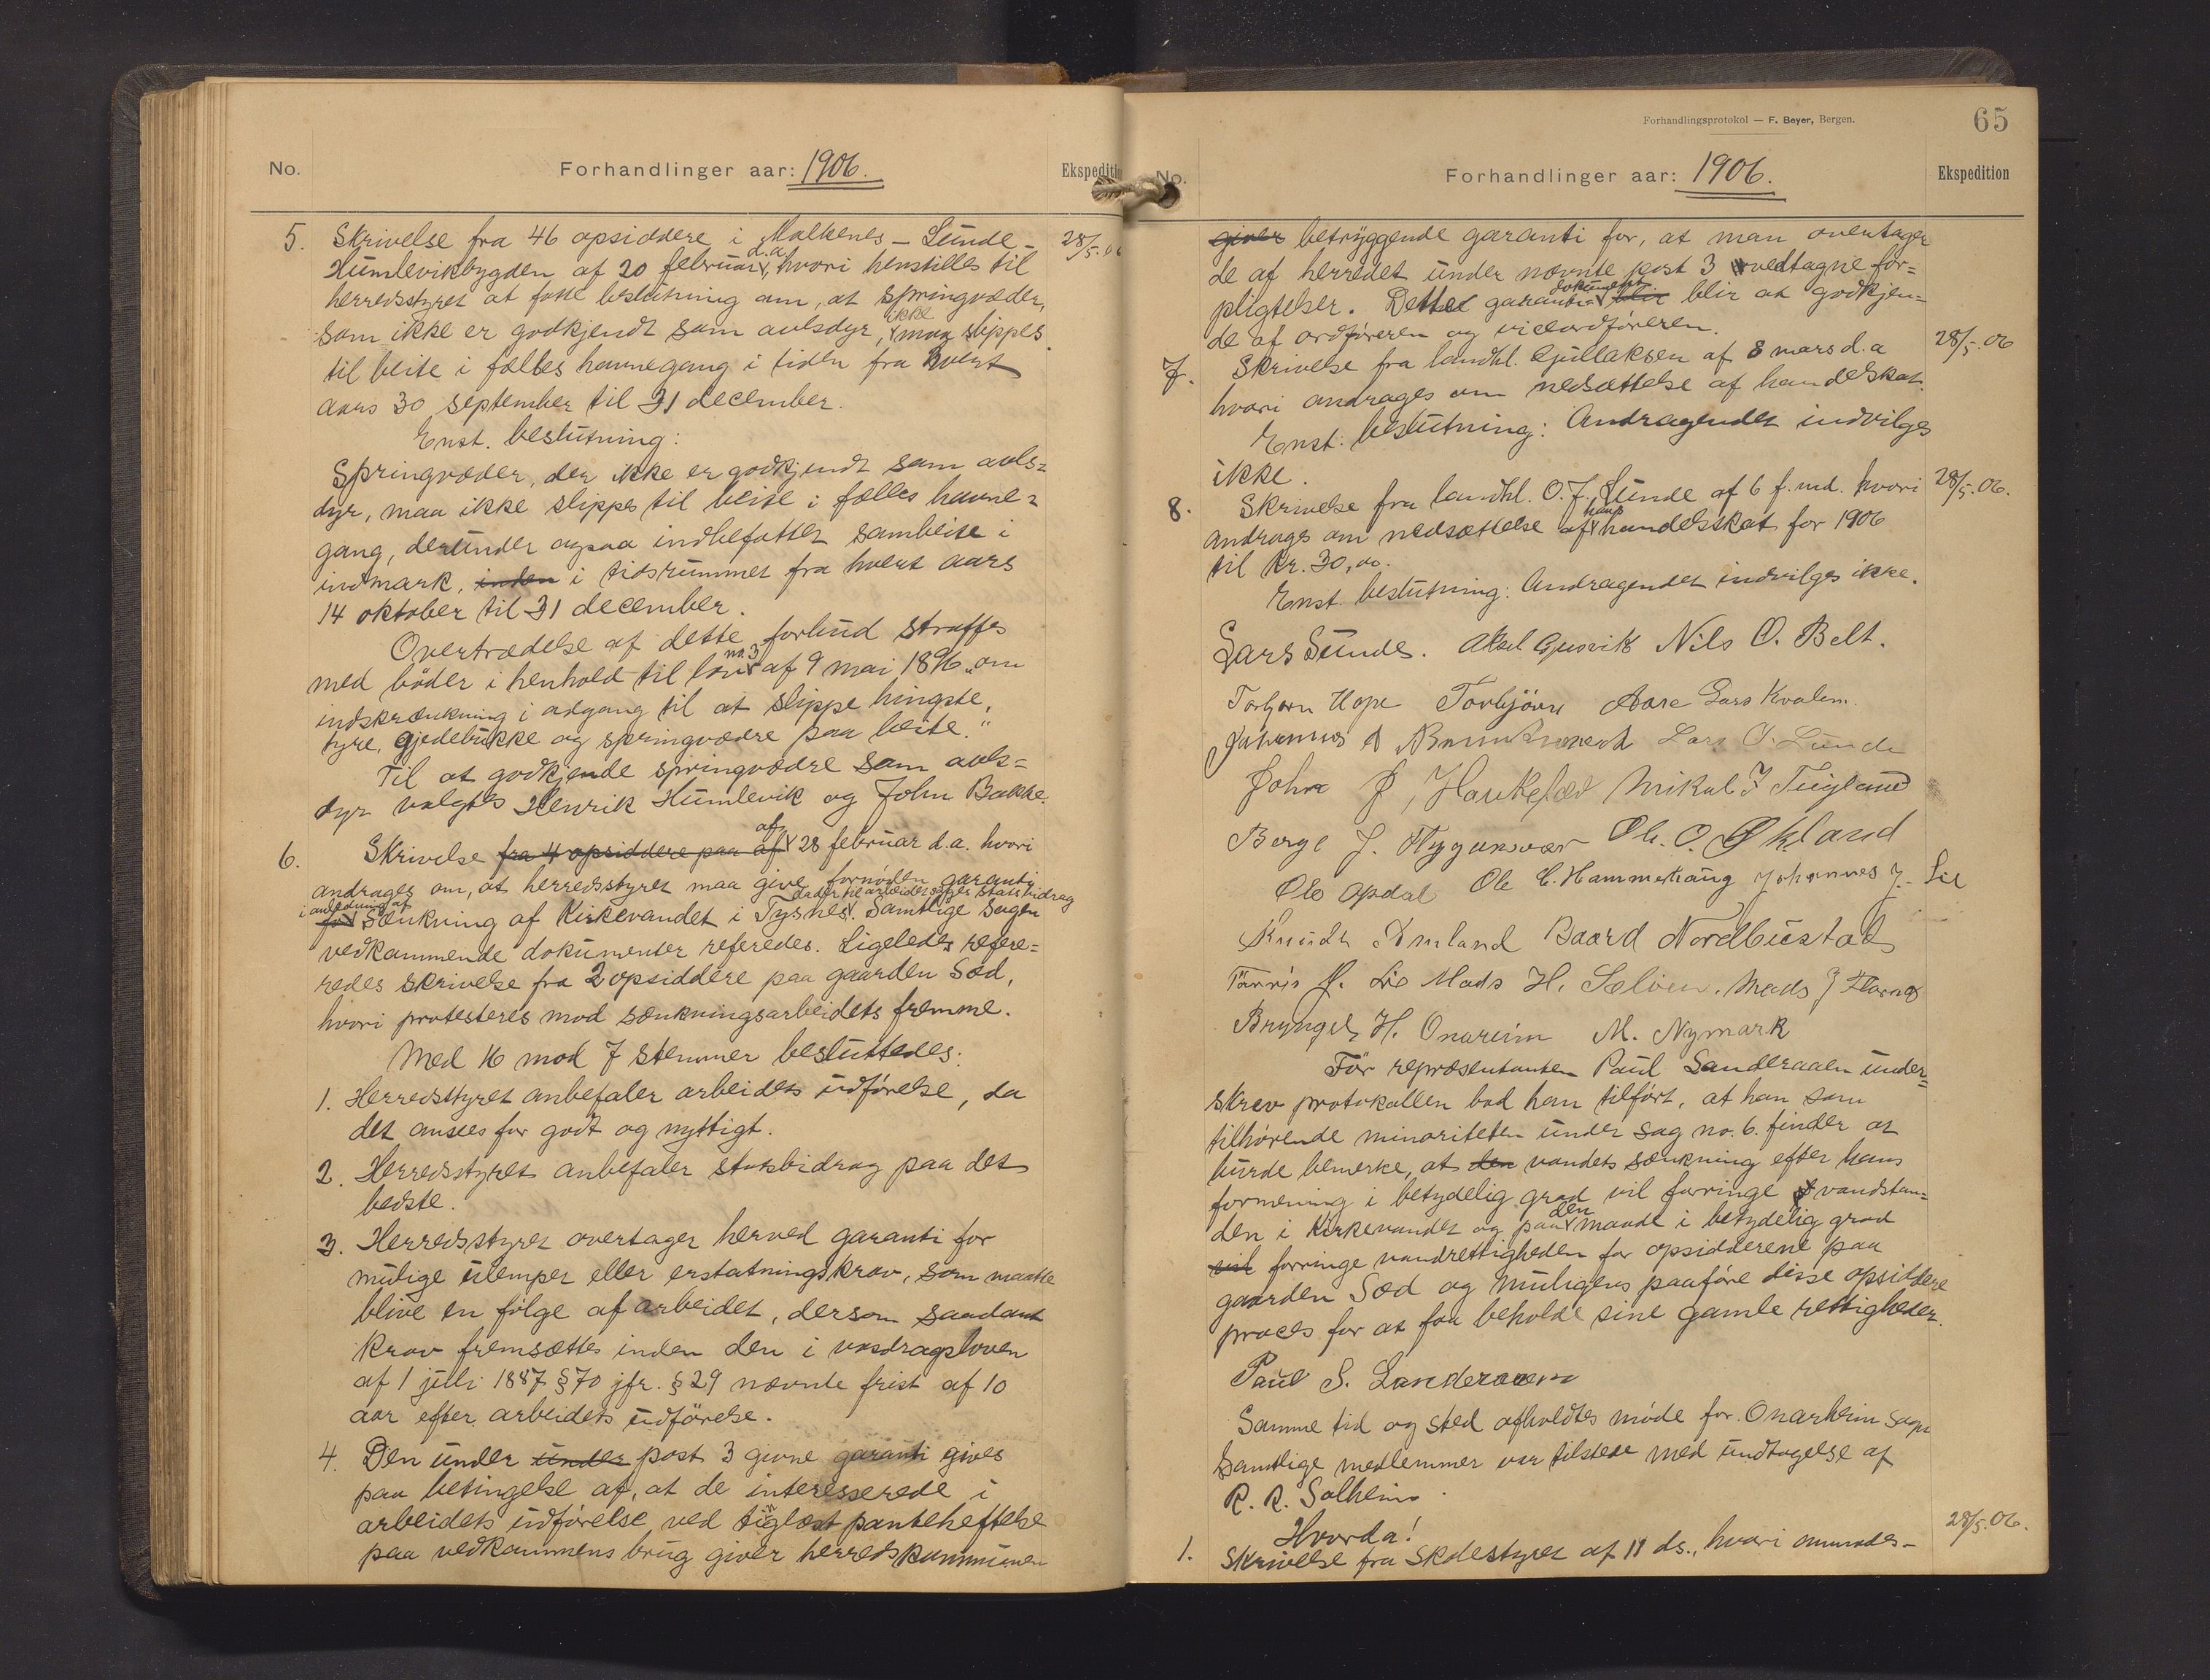 No. Forhandlinger aar: 1906. Ekspediti
5. Skrivelse fra 46 opsiddere i Malkenes – Lunde – 28/5.06
Humlevikbygden af 20 februar d.a. hvori henstilles til
herredsstyret at fatte beslutning om, at springvæder,
som ikke er godkjendt som avlsdyr, ikke maa slippes
til beite i fælles havnegang i tiden fra hvert
aars 30 september til 31 december.
Enst. beslutning:
Springvæder, der ikke er godkjendt som avls=
dyr, maa ikke slippes til beite i fælles havne=
gang, derunder ogsaa indbefattet sambeite i
indmark, inden i tidsrummet fra hvert aars
14 oktober til 31 december.
Overtrædelse af dette forbud straffes
med bøder i henhold til lov no. 3 af 9 mai 1896 „om
indskrænkning i adgang til at slippe hingste,
tyre, gjedebukke og springvædre paa beite."
Til at godkjende springvædre som avls=
dyr valgtes Henrik Humlevik og John Bakke.
6. Skrivelse fra 4 opsiddere paa af af 28 februar d.a. hvori
andrages om, at herredsstyret maa give fornøden garanti
i anledning af for Sænkning af Kirkevandet i Tysnes, da der til arbeidet søges statsbidrag. Samtlige sagen
vedkommende dokumenter referedes. Ligeledes refere=
redes skrivelse fra 2 opsiddere paa gaarden Sød,
hvori protesteres mod sænkningsarbeidets fremme.
Med 16 mod 7 stemmer besluttedes:
1. Herredsstyret anbefaler arbeidets udførelse, da
det ansees for godt og nyttigt.
2. Herredsstyret anbefaler statsbidrag paa det
bedste.
3. Herredsstyret overtager herved garanti for
mulige ulemper eller erstatningskrav, som maatte
blive en følge af arbeidet, dersom saadant
krav fremsættes inden den i vasdragsloven
af 1 juli 1887 § 70 jfr. § 29 nævnte frist af 10
aar efter arbeidets udførelse.
4. Den under under post 3 givne garanti gives
paa betingelse af, at de interesserede i
arbeidets udførelse ved tinglæst panteheftelse
paa vedkommens brug giver herredskommunen
Forhandlingsprotokol — F. Beyer, Bergen. 65
No. Forhandlinger aar: 1906. Ekspedition
giver betryggende garanti for, at man overtager
de af herredet under nævnte post 3 vedtagne for=
pligtelser. Dette garantidokument blir blir at godkjen=
de af ordføreren og viceordføreren.
7. Skrivelse fra landhl. Gullaksen af 8 mars d.a 28/5.06
hvori andrages om nedsættelse af handelskat.
Enst. beslutning: Andragendet indvilges
ikke.
8. Skrivelse fra landhl. O. J. Lunde af 6 f. md. hvori 28/5.06.
andrages om nedsættelse af hans handelsskat for 1906
til kr. 30,00.
Enst. beslutning: Andragendet indvilges ikke.
Lars Lunde. Aksel Gjersvik Nils O. Belt.
Torbjørn Hope Torbjörn Aare Lars Kvalem.
Johannes Lars O. Lunde
John J. Haukefær Mikal J Teigland
Berge J. Flygansvær Ole. O. Økland
Ole Opdal Ole C. Hammerhaug Johannes J. Lie
Knudt Amland Baard Nordbustad
J. Lie Mads H. Mads J
Bryngel H. Onareim M. Nymark
Før repræsentanten Paul Sanderaaen under=
skrev protokollen bad han tilført, at han som
tilhørende minoriteten under sag no. 6. finder at
burde bemerke, at den vandets sænkning efter hans
formening i betydelig grad vil forringe vandstan=
den i Kirkevandet og paa den maade i betydelig grad
vil forringe vandrettigheden for opsidderene paa
gaarden Sød og muligens paaføre disse opsiddere
proces for at faa beholde sine gamle rettigheder.
Paul S. Sanderaaen
Samme tid og sted afholdtes møde for Onarheim Sogn
Samtlige medlemmer var tilstede med undtagelse af
R. R. Solheim.
Hvorda!
1. Skrivelse fra Skolestyret af 11 ds., hvori 28/5.06.